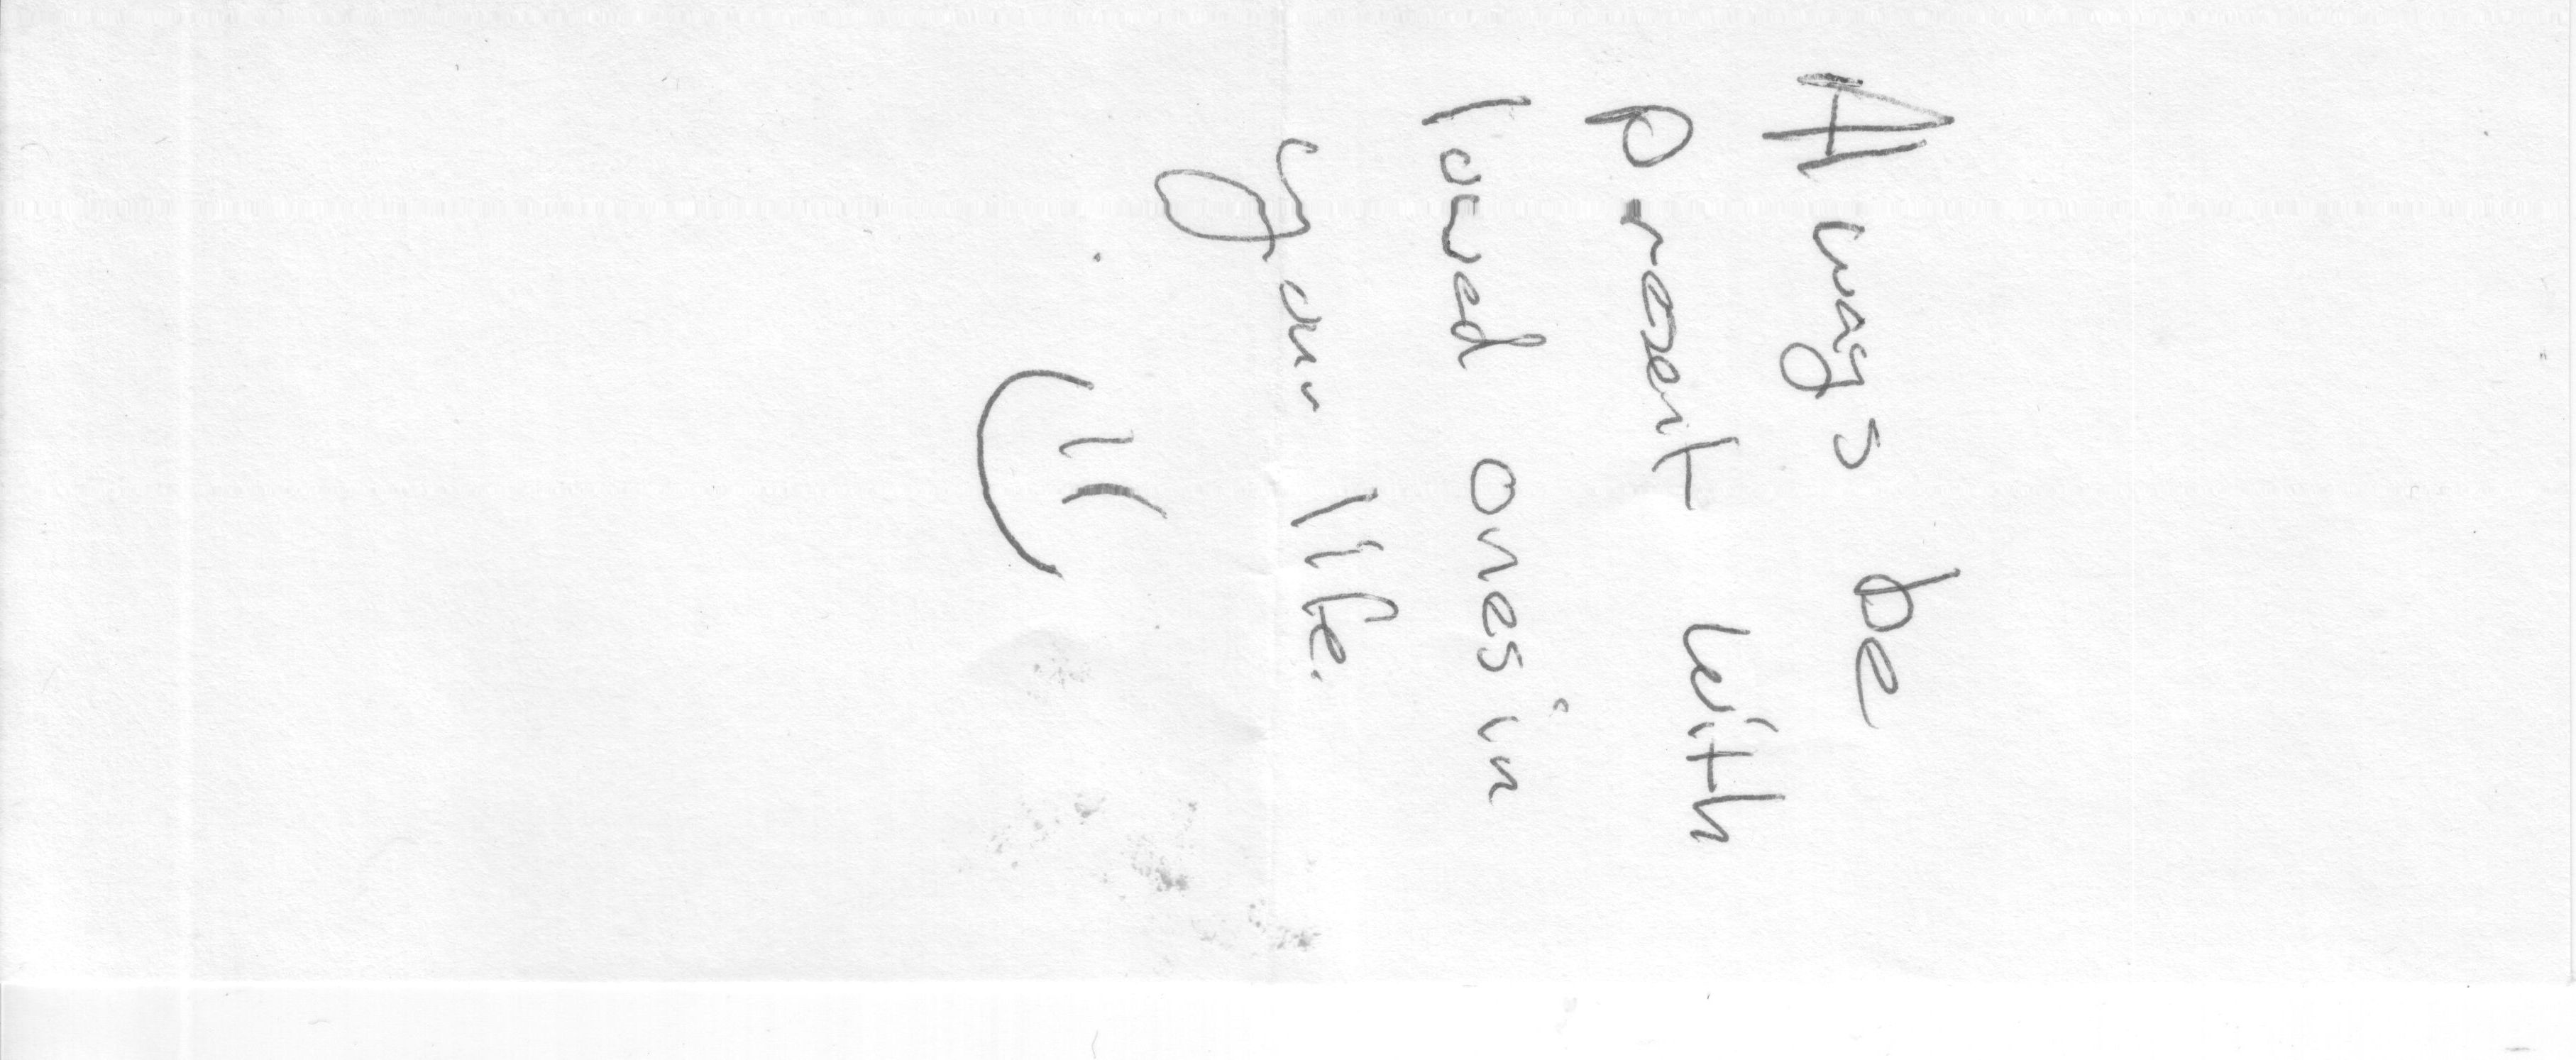 Always be
present with
loved ones in
your life.